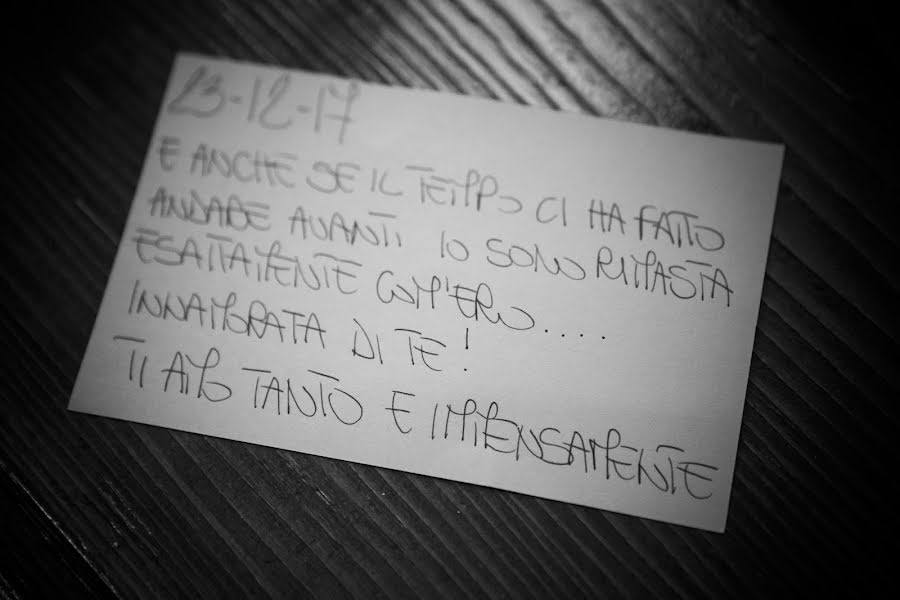 23-12-17
E ANCHE SE IL TEMPO CI HA FATTO
ANDARE AVANTI IO SONO RIMASTA
ESATTAMENTE COM'ERO....
INNAMORATA DI TE!
TI AMO TANTO E IMMENSAMENTE